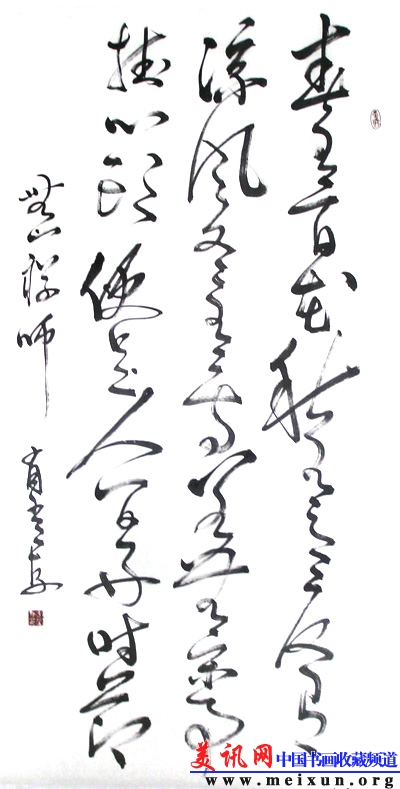 春有百花秋有月夏有
凉风冬有雪若无闲事
挂心头便是人间好时节
無门禅师
美讯网 中国书画收藏频道
www.meixun.org